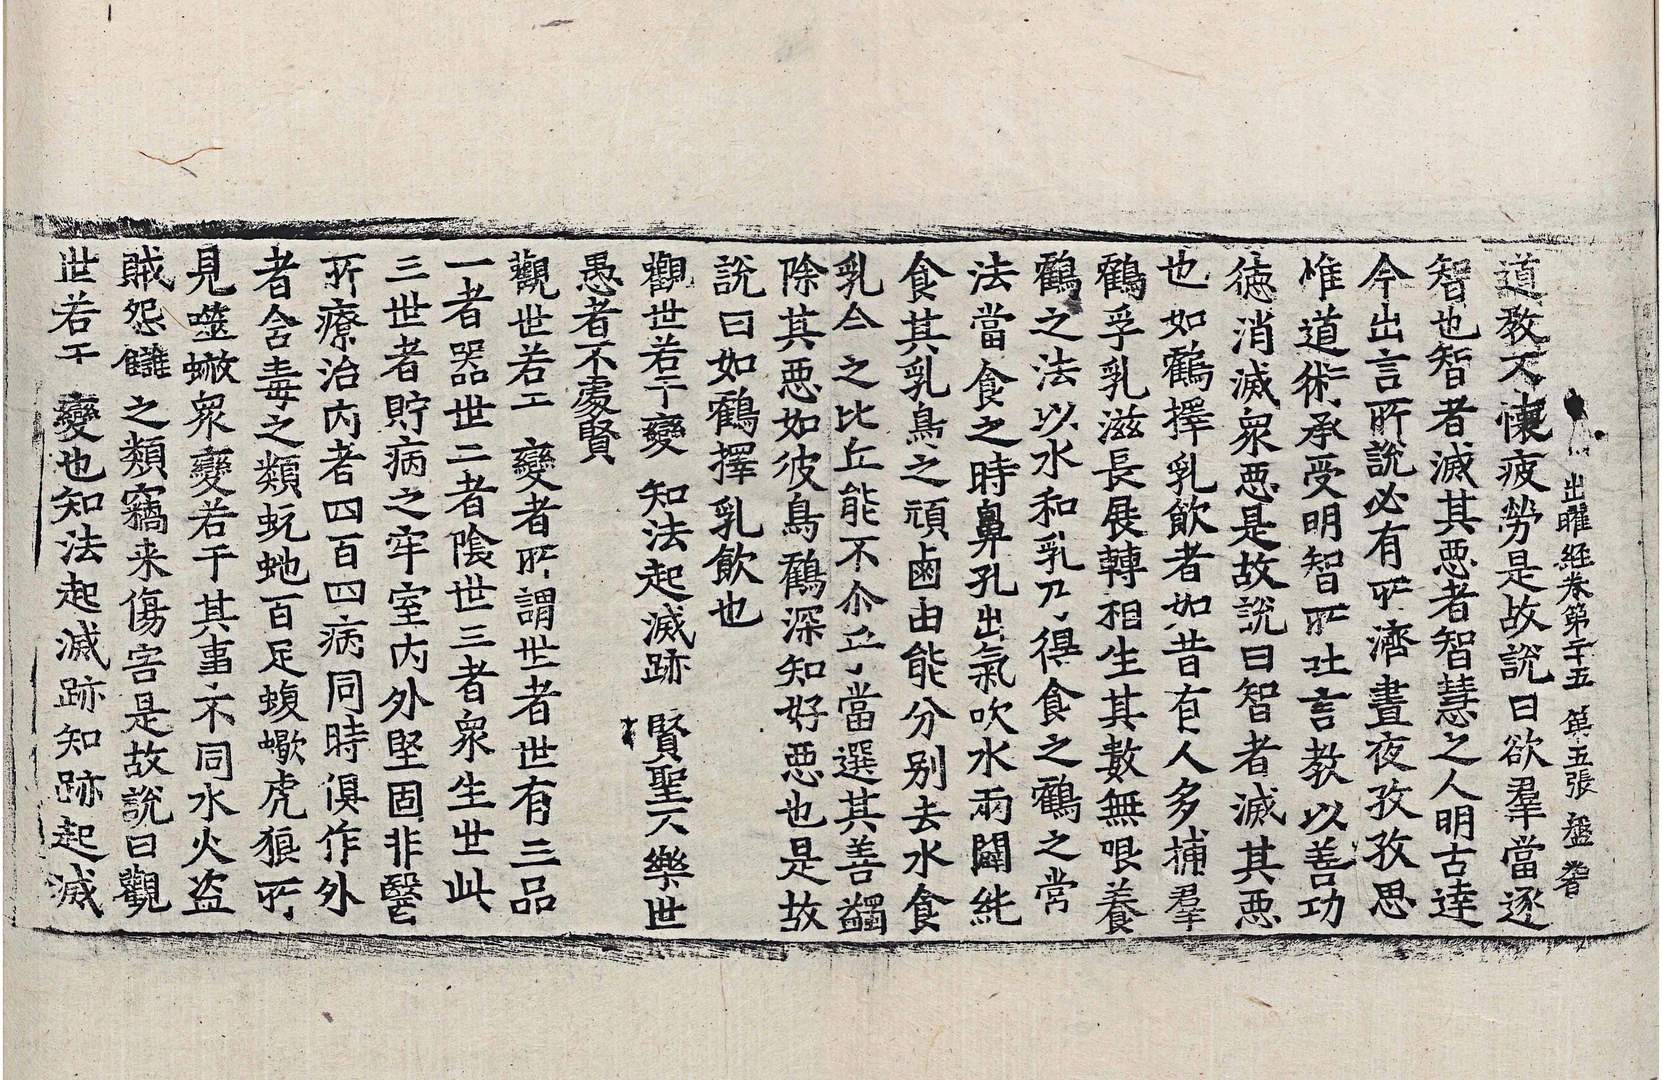 出曜經卷第二十五 第五張 盤
道教不懷疲勞是故說曰欲羣當逐
智也智者滅其惡者智慧之人明古達
今出言所說必有所濟晝夜孜孜思
惟道術承受明智所吐言教以善功
德消滅衆惡是故說曰智者滅其惡
也如鶴擇乳飲者如昔有人多捕羣
鶴孚乳滋長展轉相生其數無限養
鶴之法以水和乳乃得食之鶴之常
法當食之時鼻孔出氣吹水兩闢純
食其乳鳥之頑鹵由能分别去水食
乳今之比丘能不尒乎當選其善蠲
除其惡如彼鳥鶴深知好惡也是故
說曰如鶴擇乳飲也
觀世若干變 知法起滅跡 賢聖不樂世
愚者不處賢
觀世若干變者所謂世者世有三品
一者器世二者陰世三者衆生世此
三世者貯病之牢室内外堅固非醫
所療治内者四百四病同時俱作外
者含毒之類蚖虵百足蝮蠍虎狼所
見噬螫衆變若干其事不同水火盗
賊怨讎之類竊来傷害是故說曰觀
世若干變也知法起滅跡知跡起滅